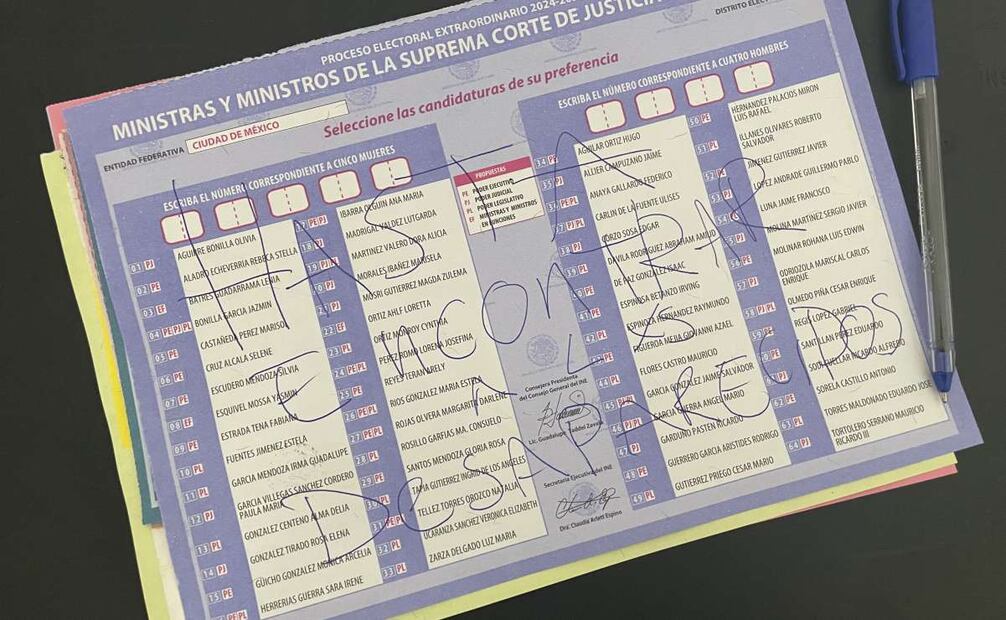 PROCESO ELECTORAL EXTRAORDINARIO 2024-20
MINISTRAS Y MINISTROS DE LA SUPREMA CORTE DE JUSTICIA
DISTRITO ELECT
Seleccione las candidaturas de su preferencia
ENTIDAD FEDERATIVA CIUDAD DE MÉXICO
ESCRIBA EL NÚMERO CORRESPONDIENTE A CINCO MUJERES
01 PJ AGUIRRE BONILLA OLIVIA
02 PE ALADRO ECHEVERRIA REBECA STELLA
03 EF BATRES GUADARRAMA LENIA
04 PE PJ PL BONILLA GARCIA JAZMIN
05 PE CASTAÑEDA PEREZ MARISOL
06 PE CRUZ ALCALA SELENE
07 PE ESCUDERO MENDOZA SILVIA
08 EF ESQUIVEL MOSSA YASMIN
09 PE ESTRADA TENA FABIANA
10 PL FUENTES JIMENEZ ESTELA
11 PJ GARCIA MENDOZA IRMA GUADALUPE
12 PJ GARCIA VILLEGAS SANCHEZ CORDERO PAULA MARIA
13 PJ GONZALEZ CENTENO ALMA DELIA
14 PJ GONZALEZ TIRADO ROSA ELENA
15 PE GÜICHO GONZALEZ MONICA ARCELIA
PE PL HERRERIAS GUERRA SARA IRENE
17 PE PJ IBARRA OLGUIN ANA MARIA
18 PJ MADRIGAL VALDEZ LUTGARDA
19 PJ MARTINEZ VALERO DORA ALICIA
MORALES IBAÑEZ MARISELA
MOSRI GUTIERREZ MAGDA ZULEMA
22 EF ORTIZ AHLF LORETTA
ORTIZ MONROY CYNTHIA
24 PL PEREZ ROMO LORENA JOSEFINA
25 PE REYES TERAN ARELY
26 PE PL RIOS GONZALEZ MARIA ESTELA
27 PE PL ROJAS OLVERA MARGARITA DARLENE
28 PL ROSILLO GARFIAS MA. CONSUELO
SANTOS MENDOZA GLORIA ROSA
TAPIA GUTIERREZ INGRID DE LOS ANGELES
TELLEZ TORRES OROZCO NATALIA
32 PL UCARANZA SANCHEZ VERONICA ELIZABETH
33 PL ZARZA DELGADO LUZ MARIA
PROPUESTAS
PE PODER EJECUTIVO
PJ PODER JUDICIAL
PL PODER LEGISLATIVO
EF MINISTRAS Y MINISTROS EN FUNCIONES
Consejera Presidenta
del Consejo General del INE
Lic. Guadalupe Taddei Zavala
Secretaria Ejecutiva del INE
Dra. Claudia Arlett Espino
ESCRIBA EL NÚMERO CORRESPONDIENTE A CUATRO HOMBRES
34 PE AGUILAR ORTIZ HUGO
35 PJ ALLIER CAMPUZANO JAIME
36 PE PL ANAYA GALLARDO FEDERICO
37 PJ CARLIN DE LA FUENTE ULISES
38 PJ CORZO SOSA EDGAR
39 PL DAVILA RODRIGUEZ ABRAHAM AMIUD
DE PAZ GONZALEZ ISAAC
ESPINOSA BETANZO IRVING
ESPINOZA HERNANDEZ RAYMUNDO
FIGUEROA MEJIA GIOVANNI AZAEL
44 PL FLORES CASTRO MAURICIO
45 GARCIA GONZALEZ JAIME SALVADOR
46 PJ PL GARCIA GUERRA ANGEL MARIO
47 PJ GARDUÑO PASTEN RICARDO
48 PE GUERRERO GARCIA ARISTIDES RODRIGO
49 PL GUTIERREZ PRIEGO CESAR MARIO
50 PE HERNANDEZ PALACIOS MIRON LUIS RAFAEL
ILLANES OLIVARES ROBERTO SALVADOR
JIMENEZ GUTIERREZ JAVIER
LOPEZ ANDRADE GUILLERMO PABLO
LUNA JAIME FRANCISCO
MOLINA MARTINEZ SERGIO JAVIER
MOLINAR ROHANA LUIS EDWIN
ODRIOZOLA MARISCAL CARLOS ENRIQUE
58 PJ PL OLMEDO PIÑA CESAR ENRIQUE
REGIS LOPEZ GABRIEL
SANTILLAN PEREZ EDUARDO
SODI CUELLAR RICARDO ALFREDO
62 PE SORELA CASTILLO ANTONIO
63 PL TORRES MALDONADO EDUARDO JOSE
64 PJ TORTOLERO SERRANO MAURICIO RICARDO III
HASTA
ENCONTRAR
A L X S
DESAPARECIDOS